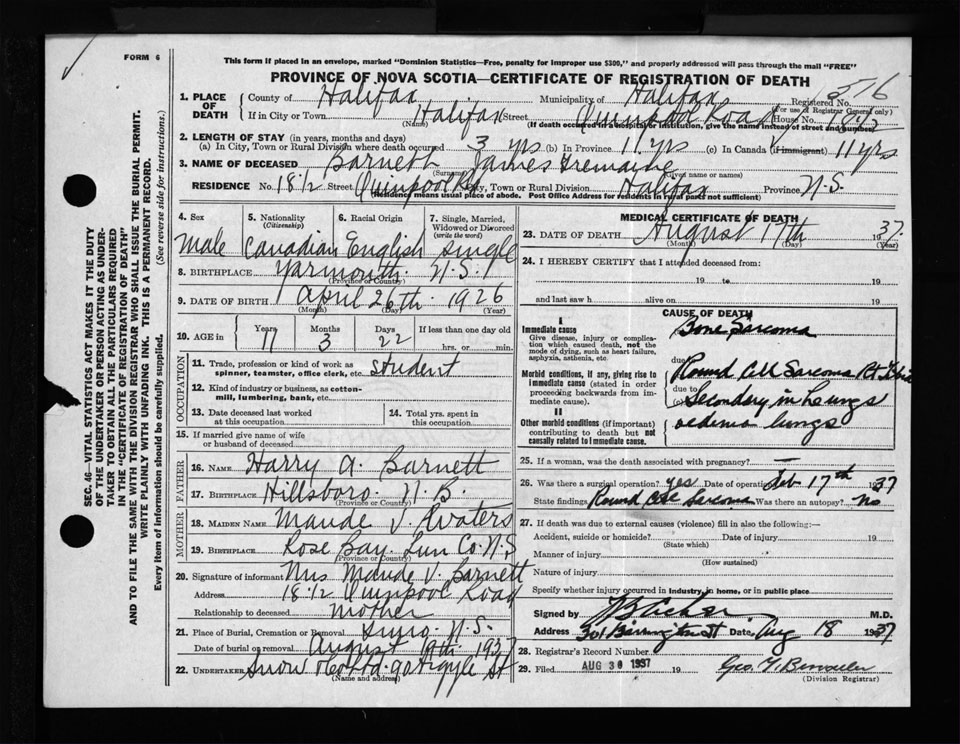 FORM 6
This form if placed in an envelope, marked "Dominion Statistics—Free, penalty for improper use $300," and properly addressed will pass through the mail "FREE"
PROVINCE OF NOVA SCOTIA—CERTIFICATE OF REGISTRATION OF DEATH
SEC. 46—VITAL STATISTICS ACT MAKES IT THE DUTY
OF THE UNDERTAKER OR PERSON ACTING AS UNDER-
TAKER TO OBTAIN ALL THE PARTICULARS REQUIRED
IN THE "CERTIFICATE OF REGISTRATION OF DEATH"
AND TO FILE THE SAME WITH THE DIVISION REGISTRAR WHO SHALL ISSUE THE BURIAL PERMIT.
WRITE PLAINLY WITH UNFADING INK. THIS IS A PERMANENT RECORD.
Every item of information should be carefully supplied. (See reverse side for instructions.)
1. PLACE OF DEATH County of Halifax Municipality of Halifax Registered No. 516
(For use of Registrar General only)
If in City or Town Halifax Street Quinpool Road House No.
(Name) (If death occurred in a hospital or institution, give the name instead of street and number)
2. LENGTH OF STAY (in years, months and days)
(a) In City, Town or Rural Division where death occurred 3 yrs (b) In Province 11 yrs (c) In Canada (if immigrant) 11 yrs
3. NAME OF DECEASED Barnett James Tremaine
(Surname) (Given name or names)
RESIDENCE No. 181/2 Street Quinpool Rd City, Town or Rural Division Halifax Province N.S.
(Residence means usual place of abode. Post Office Address for Residents in rural parts not sufficient)
4. Sex Male
5. Nationality (Citizenship) Canadian
6. Racial Origin English
7. Single, Married, Widowed or Divorced (write the word) Single
8. BIRTHPLACE Yarmouth N.S.
(Province or Country)
9. DATE OF BIRTH April 26th 1926
(Month) (Day) (Year)
10. AGE in Years 11 Months 3 Days 22 If less than one day old
hrs. or min.
OCCUPATION
11. Trade, profession or kind of work as spinner, teamster, office clerk, etc. Student
12. Kind of industry or business, as cotton-mill, lumbering, bank, etc.
13. Date deceased last worked at this occupation
14. Total yrs. spent in this occupation
15. If married give name of wife or husband of deceased
FATHER
16. NAME Harry A. Barnett
17. BIRTHPLACE Hillsboro N.B.
(Province or Country)
MOTHER
18. MAIDEN NAME Maude V.
19. BIRTHPLACE Rose Bay Lun Co. N.S
(Province or Country)
20. Signature of informant Mrs Maude V. Barnett
Address 181/2 Quinpool Road
Relationship to deceased mother
21. Place of Burial, Cremation or Removal N.S.
Date of burial or removal August 19th 1937
22. UNDERTAKER Snow & Co Ltd 90 Argyle St
(Name and address)
MEDICAL CERTIFICATE OF DEATH
23. DATE OF DEATH August 17th 1937
(Month) (Day) (Year)
24. I HEREBY CERTIFY that I attended deceased from:
19 to 19
and last saw h alive on 19
CAUSE OF DEATH
I
Immediate cause Bone Sarcoma
Give disease, injury or complication which caused death, not the mode of dying, such as heart failure, asphyxia, asthenia, etc.
due
Morbid conditions, if any, giving rise to immediate cause (stated in order proceeding backwards from immediate cause). Round Cell Sarcoma Rt Tibia
due to
(c) Secondary in Lungs
II
Other morbid conditions (if important) contributing to death but not causally related to immediate cause. oedema lungs
25. If a woman, was the death associated with pregnancy? —
26. Was there a surgical operation? yes Date of operation Feb 17th 1937
State findings Round Cell Sarcoma Was there an autopsy? No
27. If death was due to external causes (violence) fill in also the following:—
Accident, suicide or homicide? Date of injury 19
(State which)
Manner of injury
(How sustained)
Nature of injury
Specify whether injury occurred in Industry, in home, or in public place
Signed by M.D.
Address 301 Barrington St Date Aug 18 1937
28. Registrar's Record Number
29. Filed AUG 30 1937 19 Geo.
(Division Registrar)